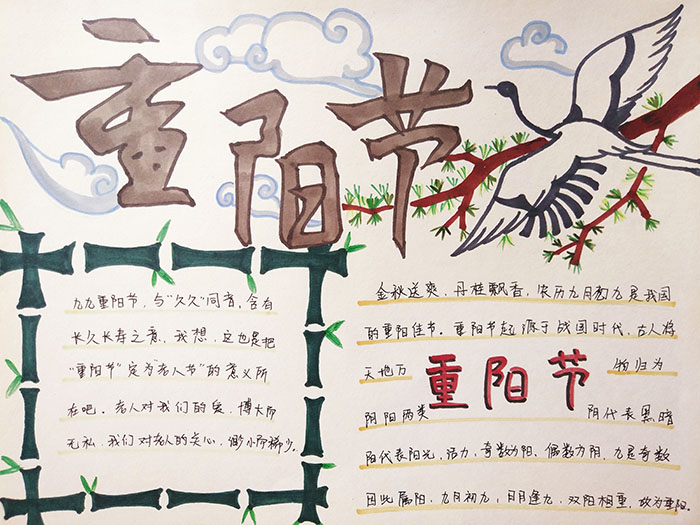 重阳节
九九重阳节，与“久久”同音，含有
长久长寿之意，我想，这也是把
“重阳节”定为“老人节”的意义所
在吧。老人对我们的爱，博大而
无私，我们对老人的关心，却少而稀少。
金秋送爽，丹桂飘香，农历九月初九是我国
的重阳佳节。重阳节起源于战国时代，古人将
天地万 重阳节 物归为
阴阳两类 阴代表黑暗
阳代表阳光，活力，奇数为阳，偶数为阴，九是奇数
因此属阳，九月初九，日月逢九，双阳相重，故为重阳。